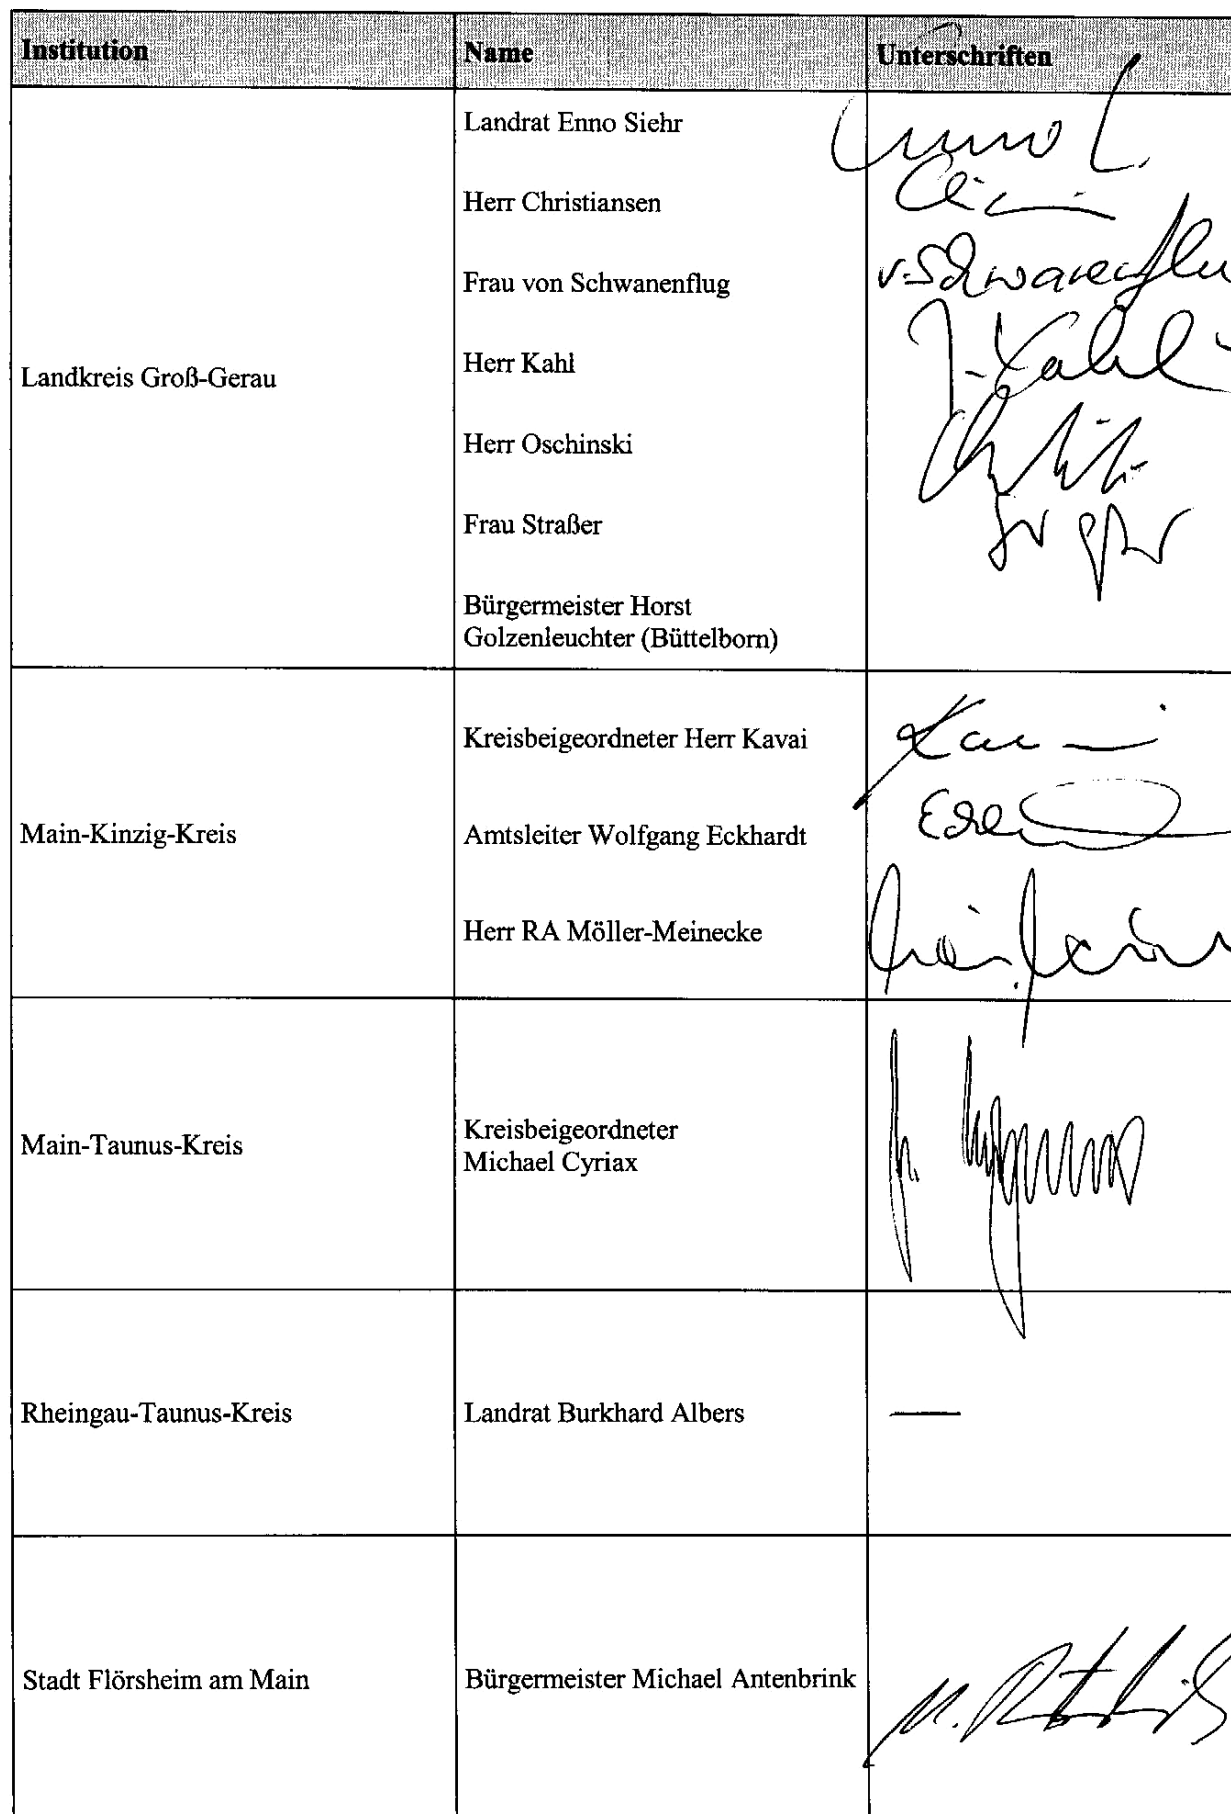 Institution Name Unterschriften
Landrat Enno Siehr
Enno
Herr Christiansen
Frau von Schwanenflug
v. Schwanenflu
Herr Kahl
J. Kahl
Landkreis Groß-Gerau
Herr Oschinski
Frau Straßer
Bürgermeister Horst
Golzenleuchter (Büttelborn)
Kreisbeigeordneter Herr Kavai
Main-Kinzig-Kreis
Amtsleiter Wolfgang Eckhardt
Herr RA Möller-Meinecke
Main-Taunus-Kreis
Kreisbeigeordneter
Michael Cyriax
Rheingau-Taunus-Kreis
Landrat Burkhard Albers
—
Stadt Flörsheim am Main
Bürgermeister Michael Antenbrink